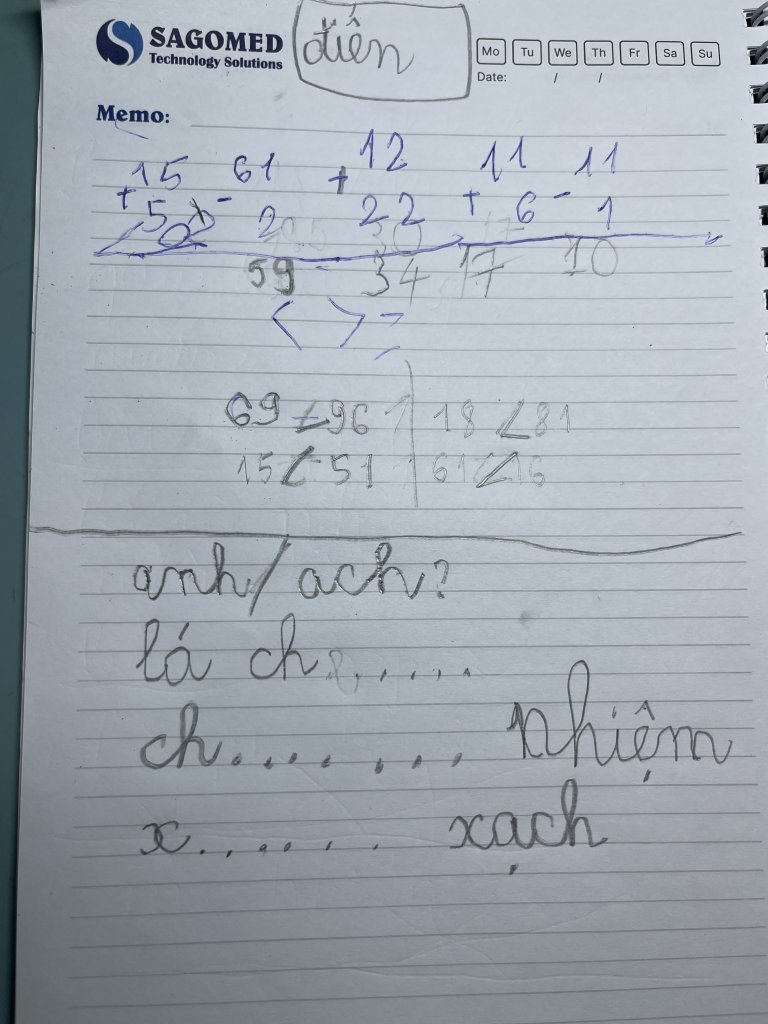 SAGOMED
Technology Solutions
điền
Mo Tu We Th Fr Sa Su
Date: / /
Memo:
15 61 12 11 11
+ - + + -
5 2 22 6 1
59 34 17 10
< > =
69 < 96 18 < 81
15 < 51 61 < 16
anh/ach?
lá ch......
ch....... nhiệm
x...... xạch